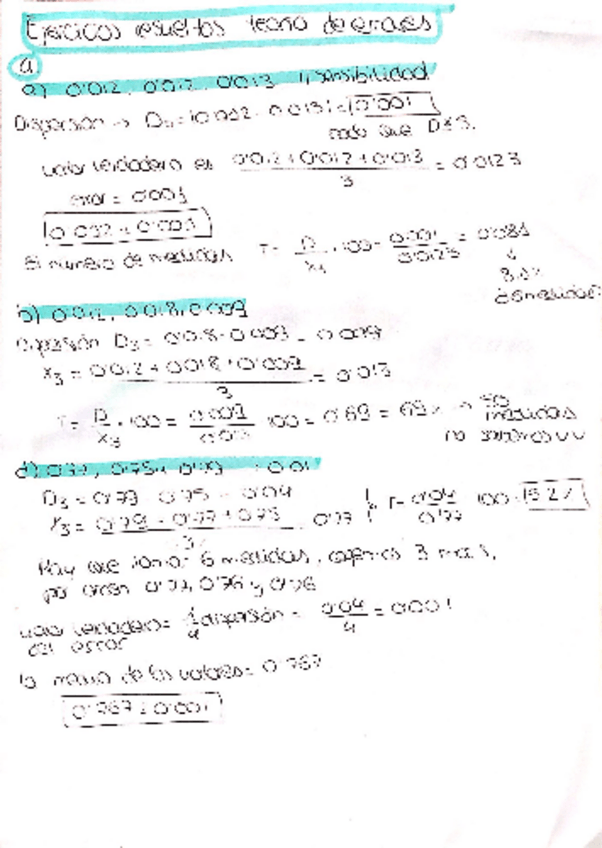 Ejercicios resueltos teoría de errores
a
a) 0'012, 0'012, 0'013 sensibilidad
Dispersión → D3 = |0'012 - 0'013| = 0'001
dado que D≤S.
valor verdadero es 0'012 + 0'012 + 0'013 / 3 = 0'0123
error = 0'001
El número de medidas T = D/x3 · 100 = 0'001/0'0123 = 0'081
b) 0'012, 0'018, 0'009
Dispersión D3 = 0'018 - 0'009 = 0'009
x3 = 0'012 + 0'018 + 0'009 / 3 = 0'013
T = D/x3 · 100 = 0'009/0'013 100 = 0'69 = 69% → 50 medidas
no
0'75 0'79 0'01
D3 = 0'79 0'75 = 0'04
x3 = 0'79 0'77 + 0'75 / 3 0'77 T = 0'04/0'77 100 = 5'2%
Hay que tomar 6 medidas, cogemos 3 más,
0'77, 0'76 y 0'76
valor verdadero = 1/4 dispersión = 0'04/4 = 0'001
del error
la media de los valores = 0'767
0'767 ± 0'001